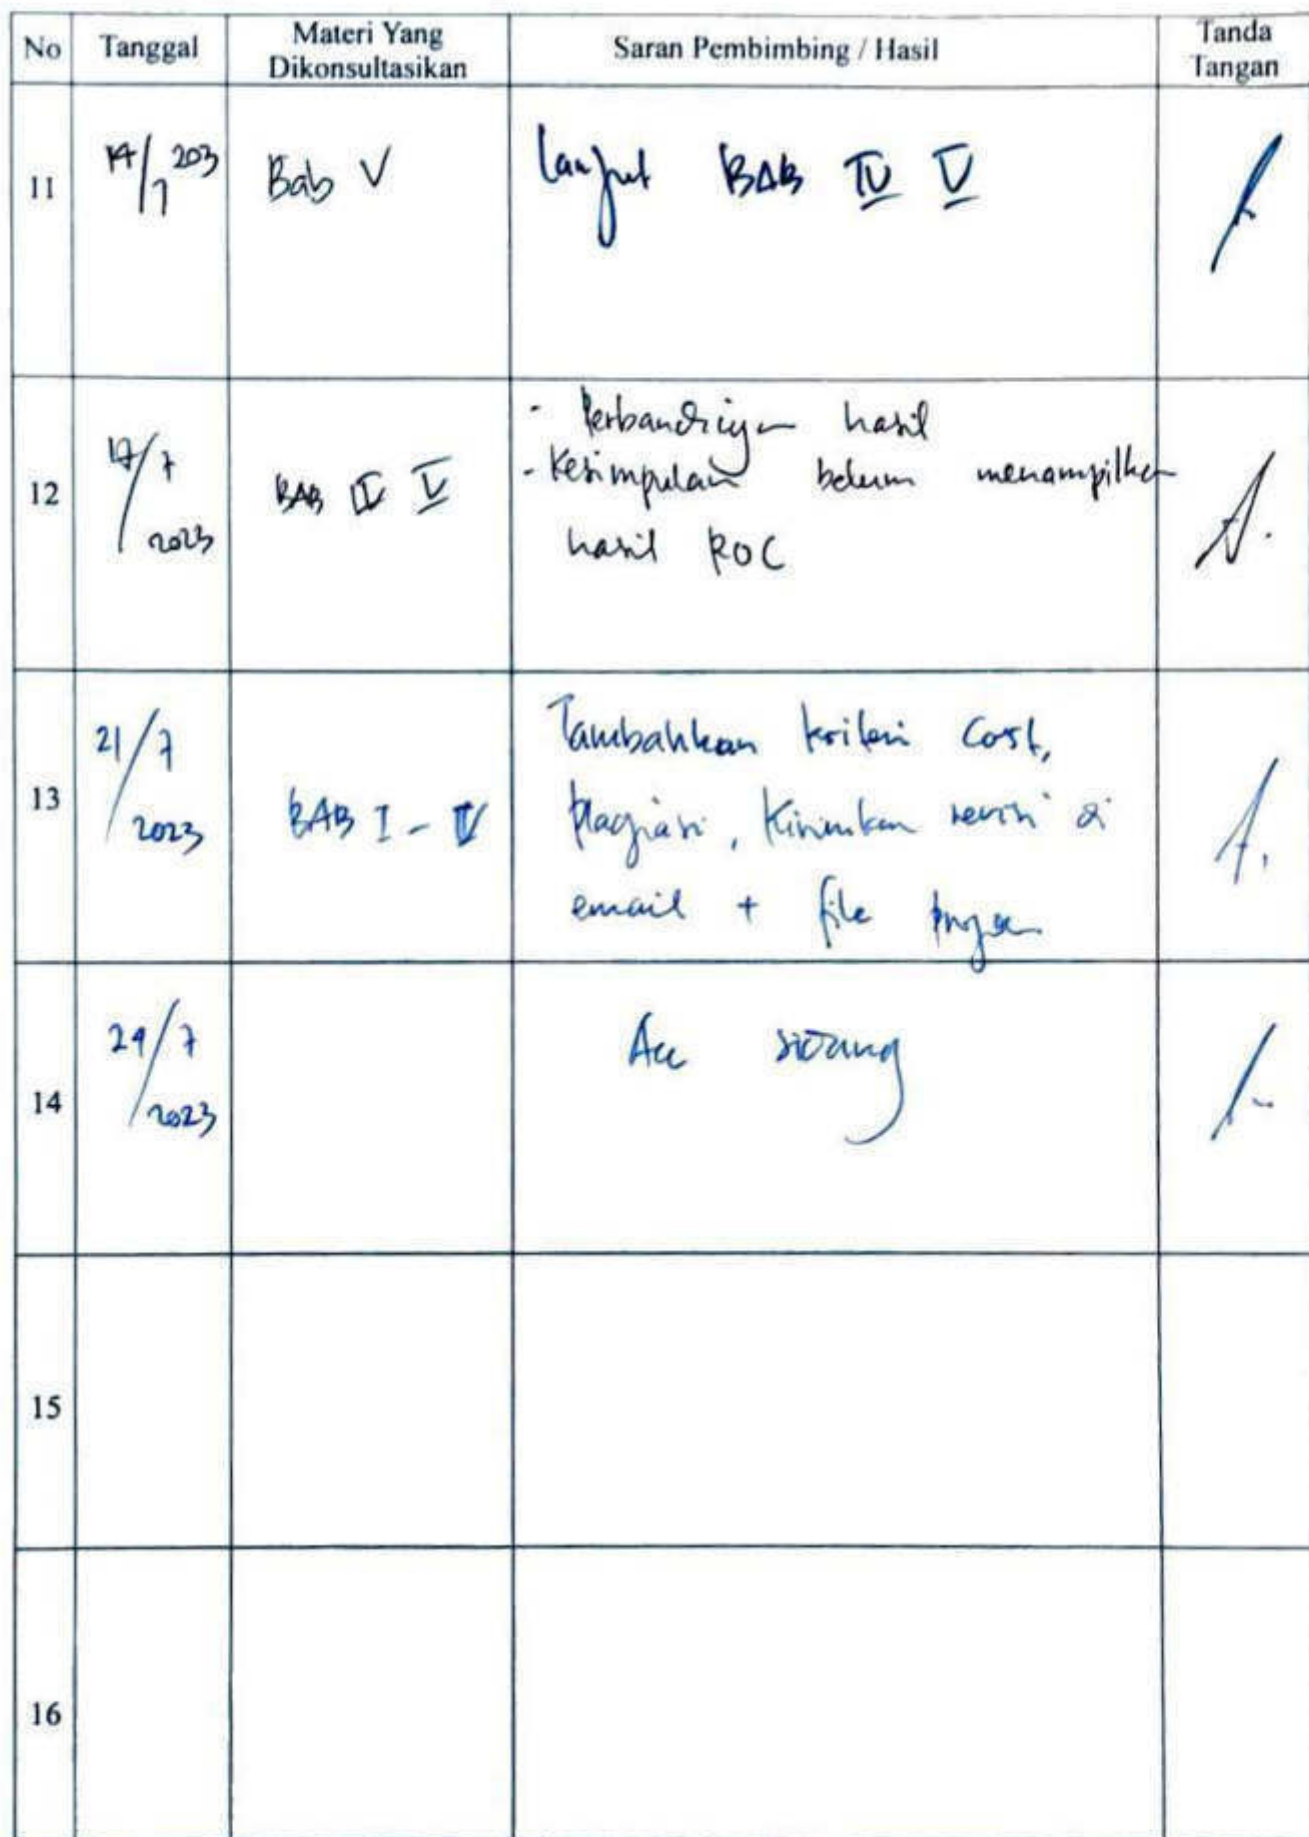 No Tanggal Materi Yang Dikonsultasikan Saran Pembimbing / Hasil Tanda Tangan
11 14/7 203 Bab V Lanjut BAB IV V
12 17/7 2023 BAB IV V - Perbandingan hasil
- Kesimpulan belum menampilkan
hasil ROC
13 21/7 2023 BAB I - V Tambahkan kriteri Cost,
plagiasi, Kirimkan revisi di
email + file
14 24/7 2023 Acc sidang
15
16